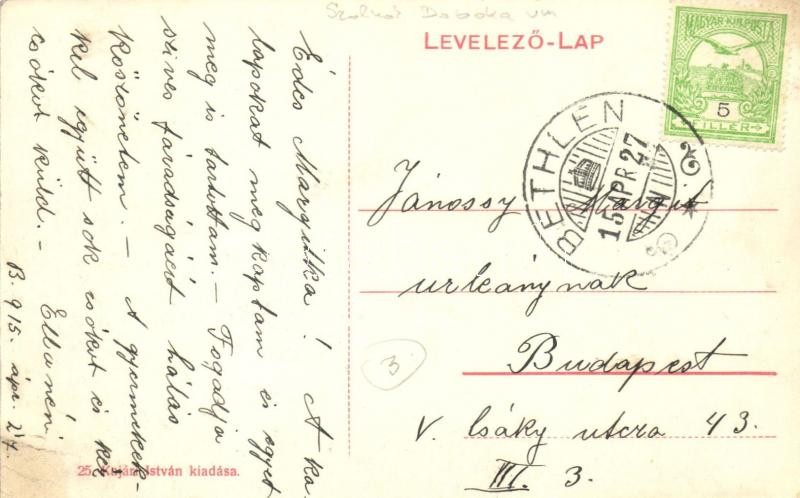 Szolnok Doboka vm
LEVELEZŐ-LAP
MAGYAR KIR. POSTA
5
FILLÉR
BETHLEN
15 APR 27
Jánossy Margit
urleánynak
Budapest
V. Csáky utcza 43.
III. 3.
3
Édes Margitka! A ka-
lapokat meg kaptam és egyet
meg is tartottam. - Fogadja
szives fáradságáért hálás
köszönetem. - A gyermekek-
kel együtt sok csókot és kéz
csókot küld. -
Ella néni
B. 915. ápr. 27.
25. Kaján István kiadása.